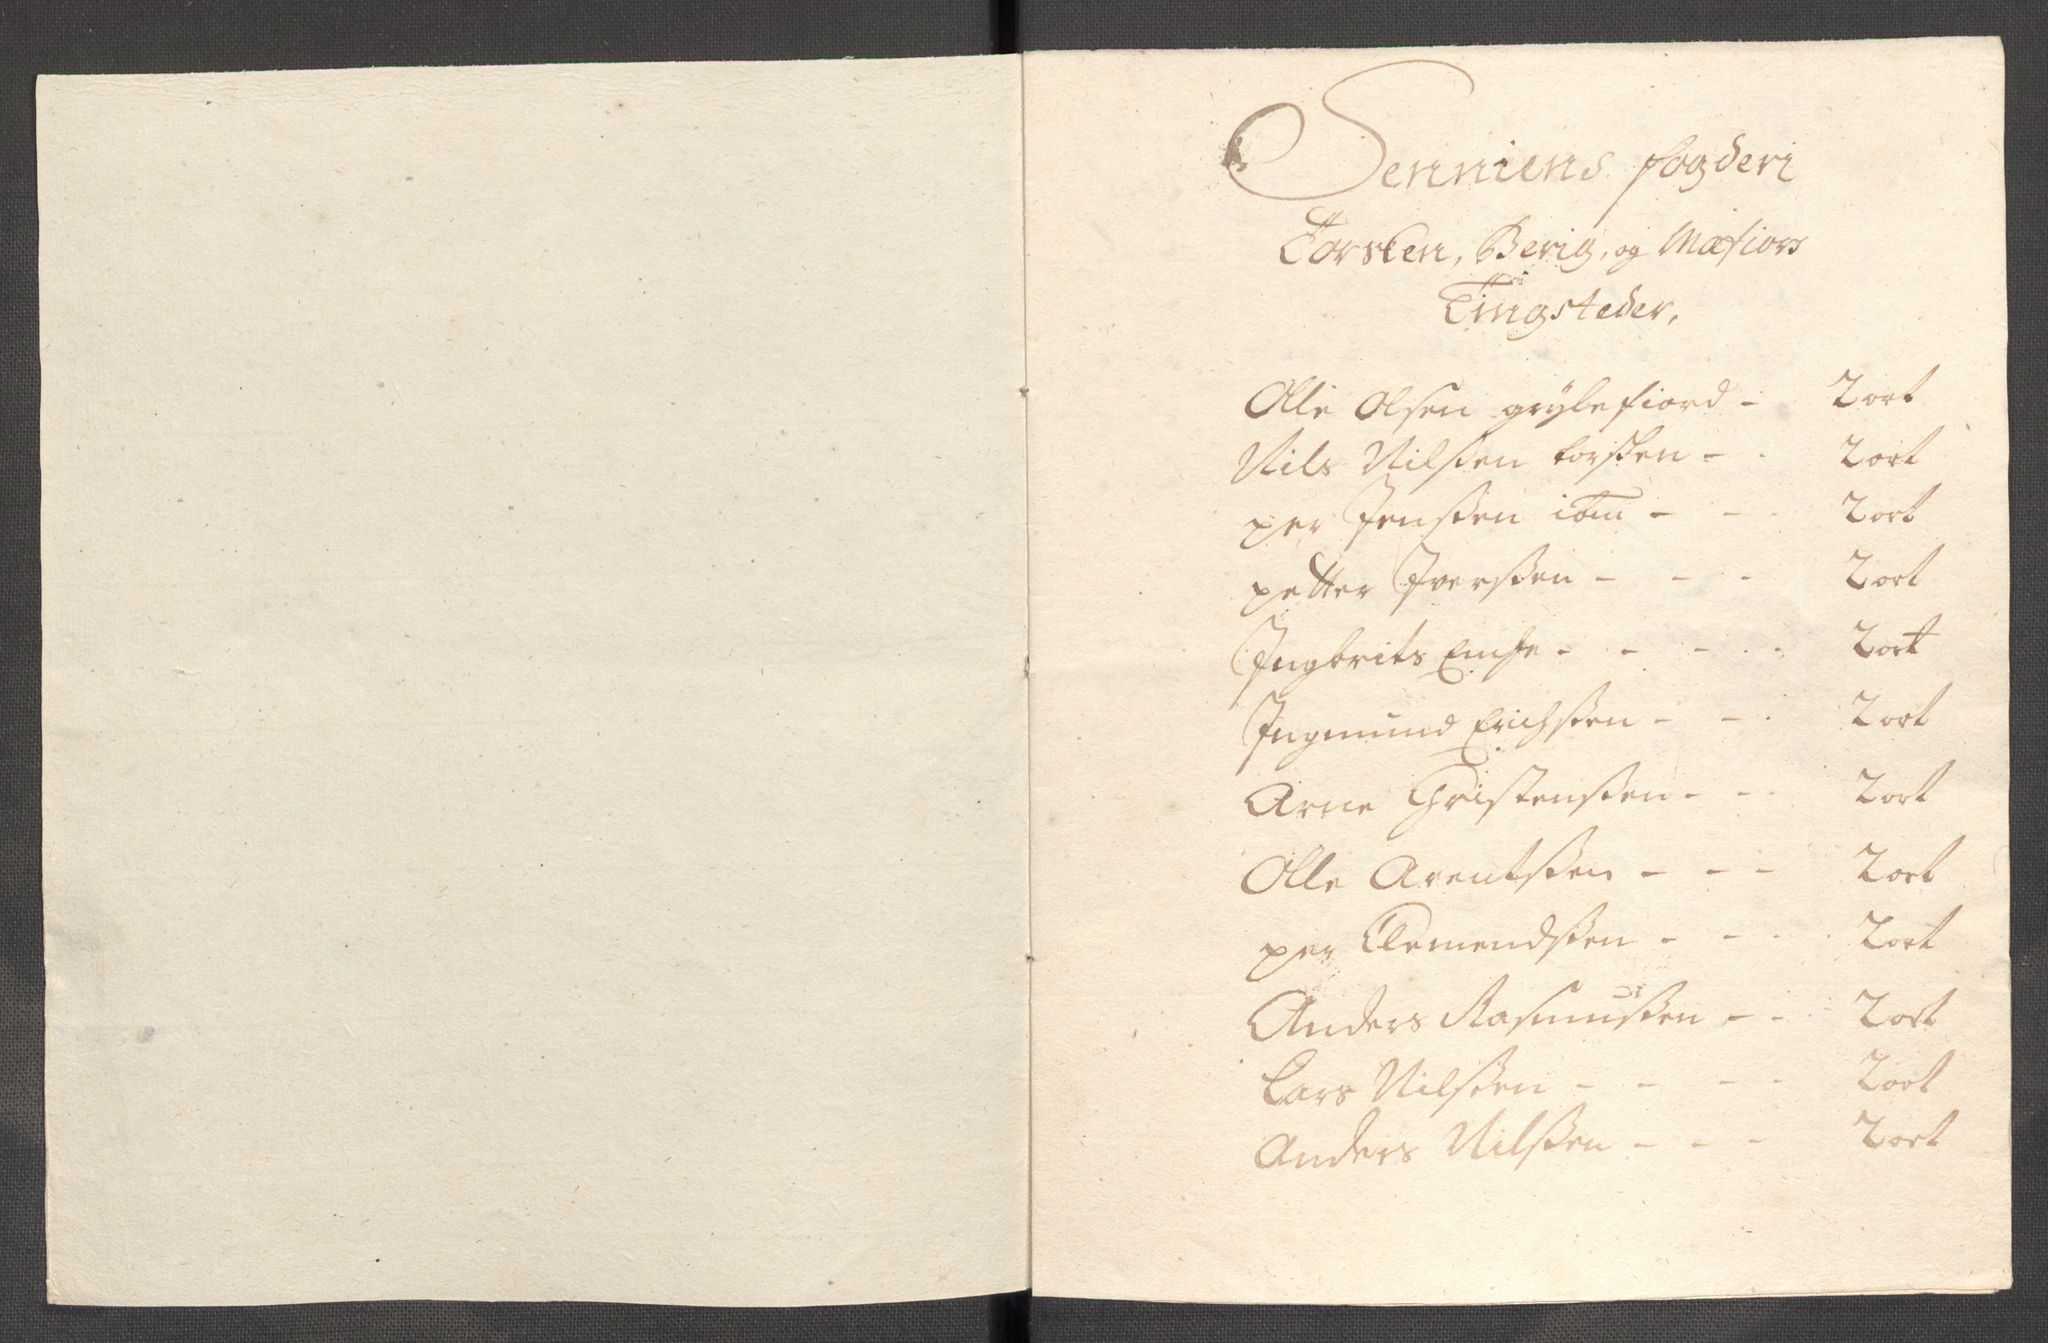 Senniens fogderi
Torsken, Berig, og Mæfiors
Tingsteder,
Olle Olsen gryllefiord - 2 ort
Nils Nilsen torsken - - 2 ort
per Jensen ibm - - - 2 ort
petter Iversen - - - 2 ort
Ingbrits Enche - - - - 2 ort
Ingmund Erichsen - - - 2 ort
Arne Christensen - - - 2 ort
Olle Arentsen - - - 2 ort
per Clemendsen - - - 2 ort
Anders Rasmusen - - - 2 ort
Lars Nilsen - - - - 2 ort
Anders Nilsen - - - 2 ort